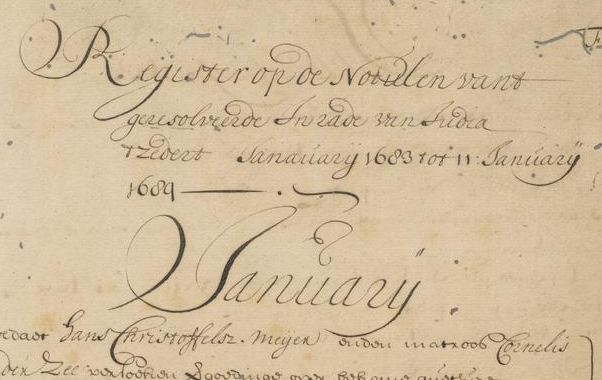 Register op de Notulen vant
geresolveerde In rade van India
tzedert Janauarij 1683 tot 11 Januarij
1689
Januarij
Hans Christoffelsz. Meijer enden matroos Cornelis
der Zee